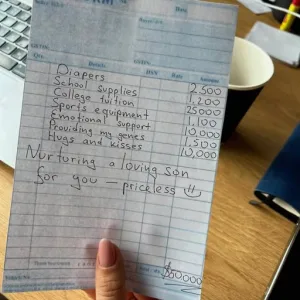 Date
Diapers 2,500
School supplies 1,200
College tuition 25000
Sports equipment 1,100
Emotional support 10,000
Providing my genes 1,500
Hugs and kisses 10,000
Nurturing a loving son
for you — priceless
$50000